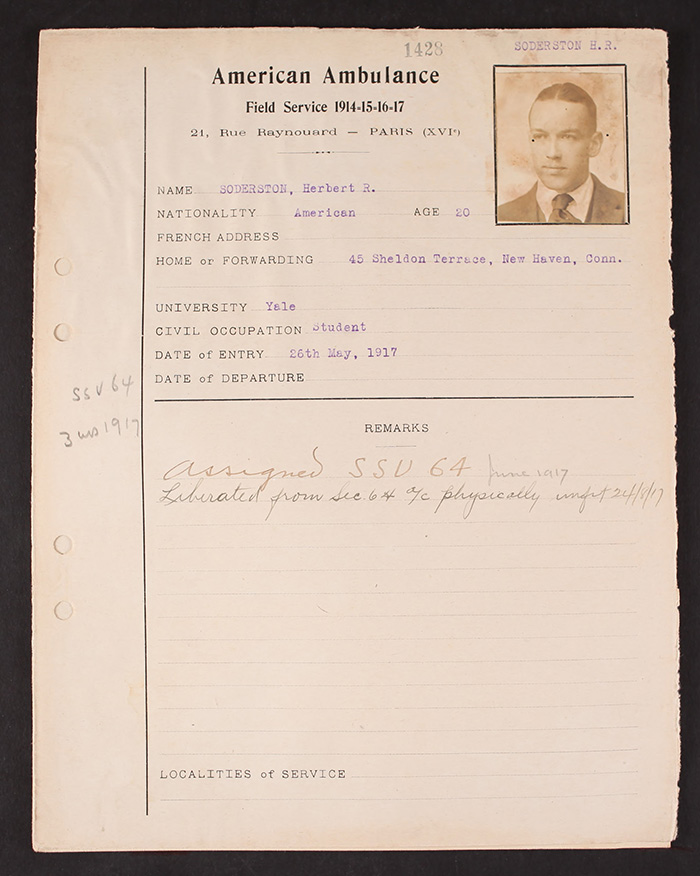 1428
SODERSTON H.R.
American Ambulance
Field Service 1914-15-16-17
21, Rue Raynouard — PARIS (XVIe)
NAME SODERSTON, Herbert R.
NATIONALITY American AGE 20
FRENCH ADDRESS
HOME or FORWARDING 45 Sheldon Terrace, New Haven, Conn.
UNIVERSITY Yale
CIVIL OCCUPATION Student
DATE of ENTRY 26th May, 1917
DATE of DEPARTURE
SSU 64
3 1917
REMARKS
Assigned SSU 64 June 1917
Liberated from Sec. 64 a/c physically unfit 24/8/17
LOCALITIES of SERVICE